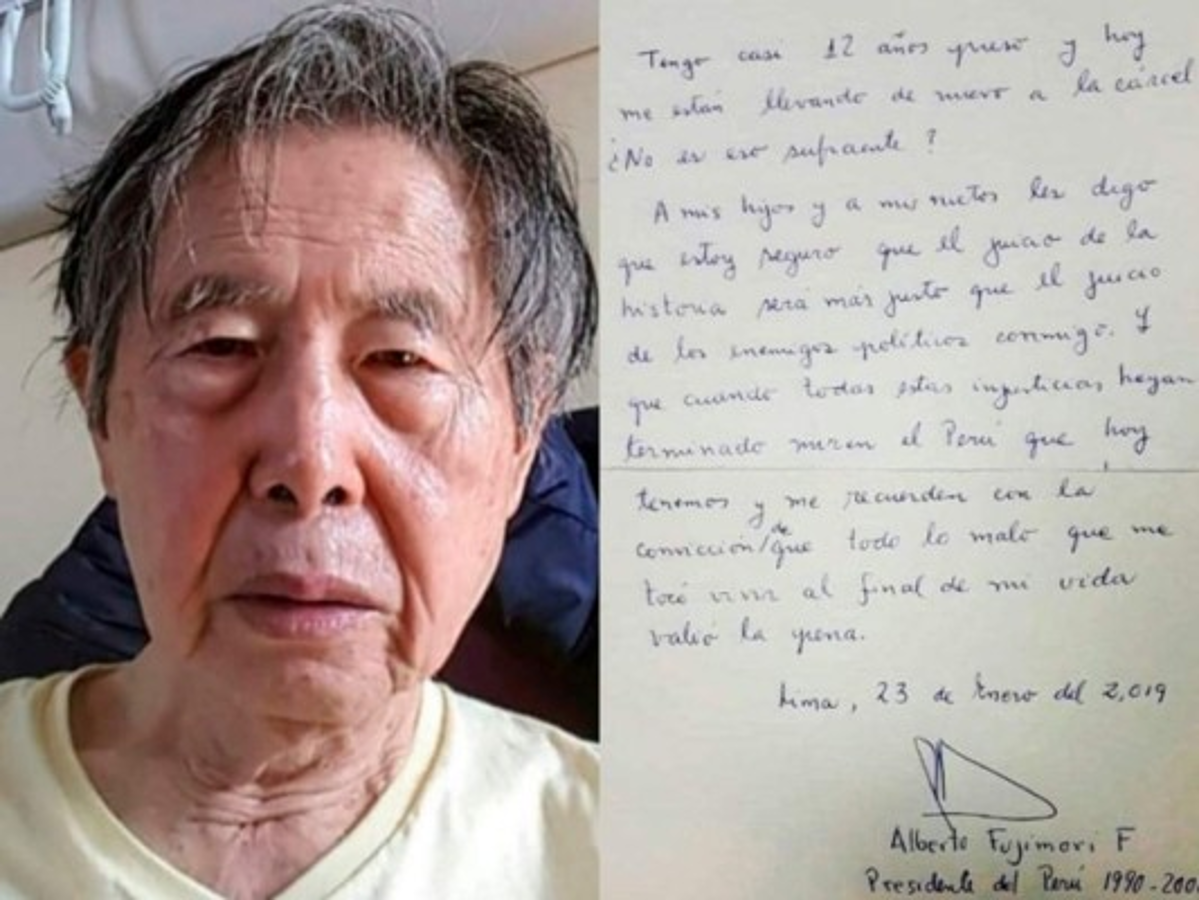 Tengo casi 12 años preso y hoy
me están llevando de nuevo a la cárcel
¿No es eso suficiente?
A mis hijos y a mis nietos les digo
que estoy seguro que el juicio de la
historia será más justo que el juicio
de los enemigos políticos conmigo. Y
que cuando todas estas injusticias hayan
terminado miren el Perú que hoy
tenemos y me recuerden con la
convicción/de que todo lo malo que me
tocó vivir al final de mi vida
valió la pena.
Lima, 23 de Enero del 2,019
Alberto Fujimori F
Presidente del Perú 1990-200